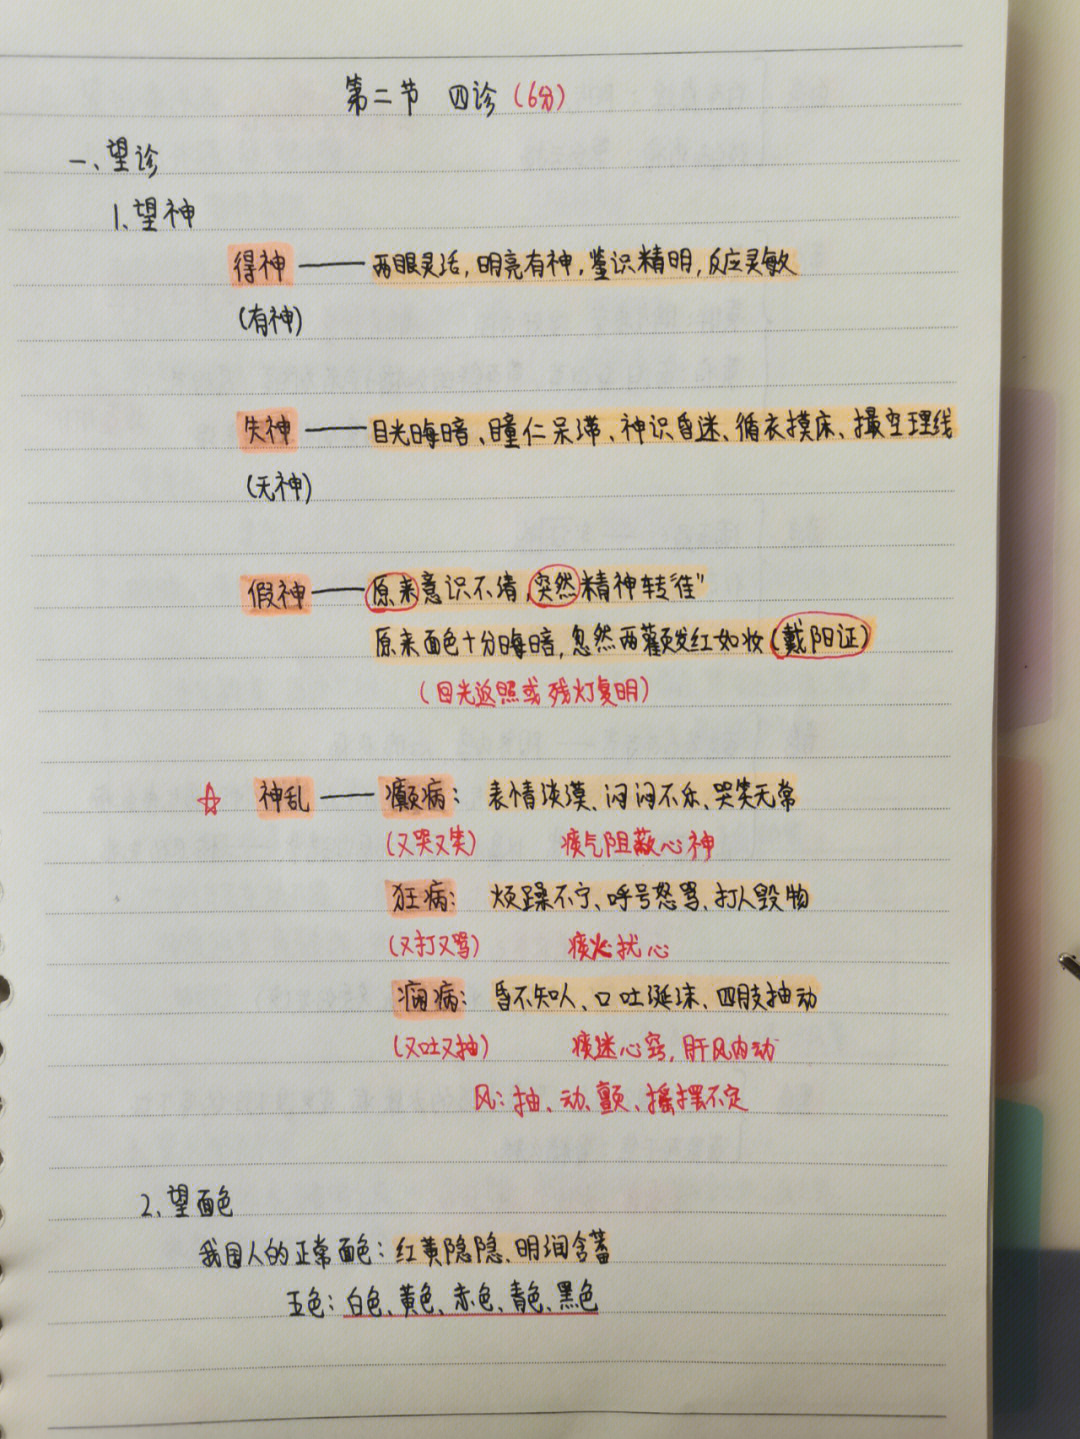 第二节 四诊(6分)
一、望诊
1、望神
得神——两眼灵活,明亮有神,鉴识精明,反应灵敏
(有神)
失神——目光晦暗、瞳仁呆滞、神识昏迷、循衣摸床、撮空理线
(无神)
假神——原来意识不清,突然精神转“佳”
原来面色十分晦暗,忽然两颧发红如妆(戴阳证)
(回光返照或残灯复明)
☆ 神乱——癫病: 表情淡漠、闷闷不乐、哭笑无常
(又哭又笑) 痰气阻蔽心神
狂病: 烦躁不宁、呼号怒骂、打人毁物
(又打又骂) 痰火扰心
痫病: 昏不知人、口吐涎沫、四肢抽动
(又吐又抽) 痰迷心窍,肝风内动
风:抽、动、颤、摇摆不定
2、望面色
我国人的正常面色:红黄隐隐、明润含蓄
五色:白色、黄色、赤色、青色、黑色